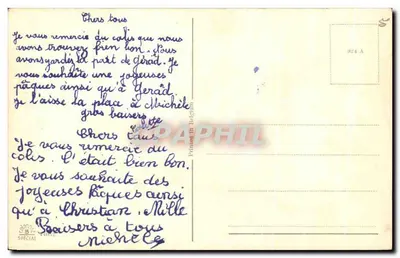 Chers tous
Je vous remercie du colis que nous
avons trouvez bien bon. Nous
avons gardez la part de Gérad. Je
vous souhaite une joyeuses
pâques ainsi qu'à Gerad.
je laisse la plaà à Michèle
gros baisers
Chers tous
Je vous remercie du
colis. C'etait bien bon.
Je vous souhaite des
joyeuses Pâques ainsi
qu'à Christian. Mille
Baisers à tous
Michèle
PHILATELIE